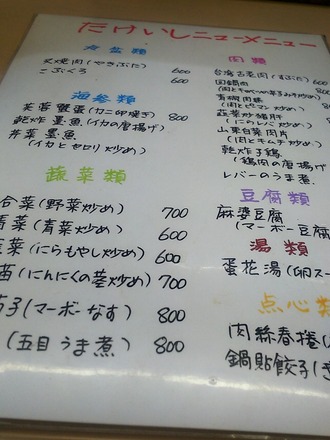 たけいしニューメニュー
叉焼肉(やきぶた) 600
こぶくろ 600
海参類
芙蓉蟹蛋(カニ卵焼き) 800
乾炸墨魚(イカの唐揚げ)
芹菜墨魚
(イカとセロリ炒め)
蔬菜類
合菜(野菜炒め) 700
青菜(青菜炒め) 600
菜(にらもやし炒め) 600
(にんにくの茎炒め) 700
茄子(マーボーなす) 800
(五目うま煮) 800
肉類
台湾古老肉(すぶた) 600
回鍋肉
(肉とキャベツの辛子みそ炒め)
青椒肉絲
(肉とピーマン炒め)
韮菜炒猪肝
(ニラレバ炒め)
山東白菜肉片
(肉とキムチ炒め)
乾炸子鶏
(鶏肉の唐揚げ
レバーのうま煮
豆腐類
麻婆豆腐
(マーボー豆腐
湯類
蛋花湯(卵スー
点心類
肉絲春捲(
鍋貼餃子(